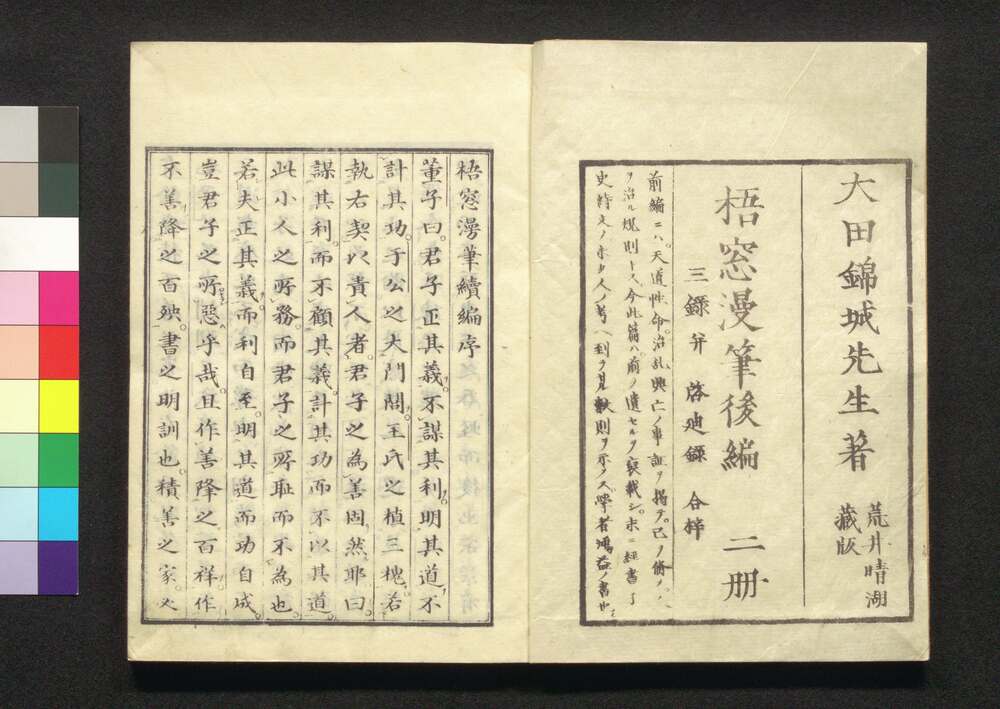 大田錦城先生著
荒井晴湖
藏版
梧窓漫筆後編 二册
三録并 啓廸録 合梓
前編ニハ天道性命治乱興亡ノ事証ヲ揚テ己ノ脩ノ人
ヲ治ル規則トス今此篇ハ前ノ遺セルヲ裒載シ末ニ經書
史詩文ノ未タ人ノ考ヘ到ラヌ
梧窓漫筆續編序
董子曰君子正其義不謀其利明其道不
計其功于公之大門閭王氏之植三槐若
執右契以責人者君子之為善固然耶曰
謀其利而不顧其義計其功而不以其道
此小人之所務而君子之所恥而不為也
若夫正其義而利自至明其道而功自成
豈君子之所惡乎哉且作善降之百祥作
不善降之百殃書之明訓也積善之家必